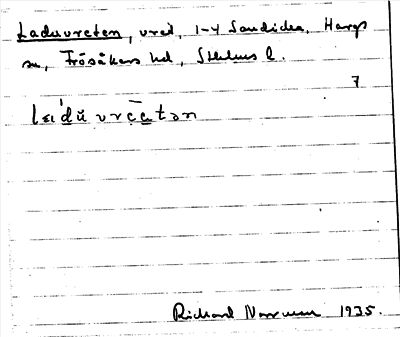 Laduvreten, vret, 1-4 Sandika, Hargs
sn, Frösåkers hd, Sthlms l.
7
Richard Norrman 1935.